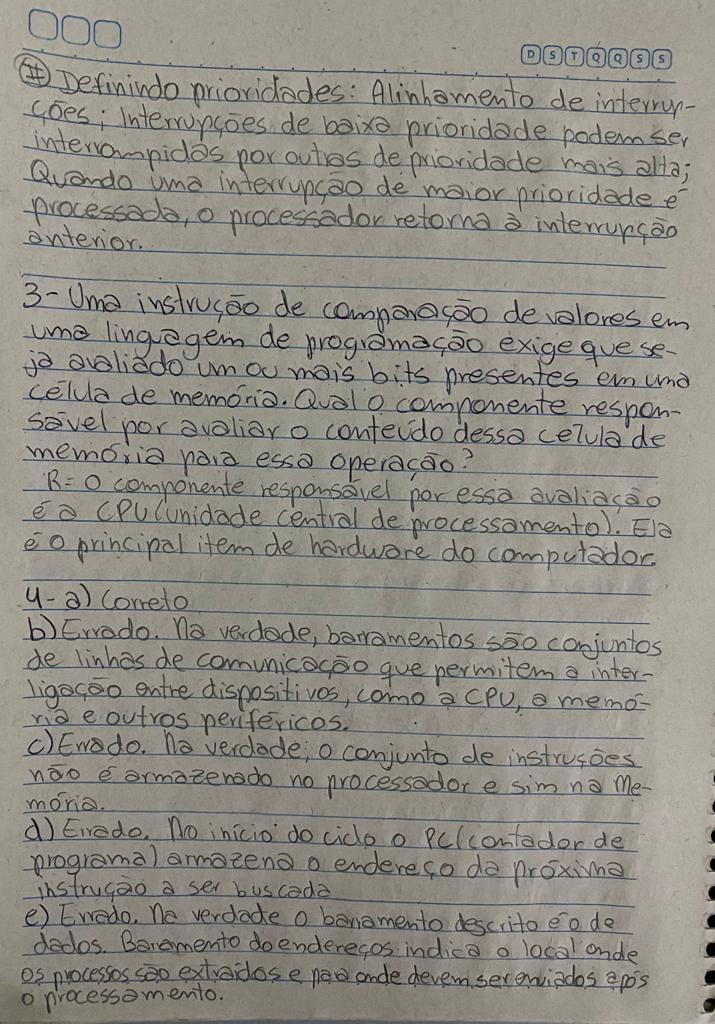 D S T Q Q S S
# Definindo prioridades: Alinhamento de interrup-
ções; Interrupções de baixa prioridade podem ser
interrompidas por outras de prioridade mais alta;
Quando uma interrupção de maior prioridade é
processada, o processador retorna à interrupção
anterior.
3- Uma instrução de comparação de valores em
uma linguagem de programação exige que se-
ja avaliado um ou mais bits presentes em uma
célula de memória. Qual o componente respon-
sável por avaliar o conteúdo dessa célula de
memória para essa operação?
R= O componente responsável por essa avaliação
é a CPU (unidade central de processamento). Ela
é o principal item de hardware do computador.
4- a) Correto
b) Errado. Na verdade, barramentos são conjuntos
de linhas de comunicação que permitem a inter-
ligação entre dispositivos, como a CPU, a memó-
ria e outros periféricos.
c) Errado. Na verdade, o conjunto de instruções
não é armazenado no processador e sim na Me-
mória.
d) Errado. No início do ciclo o PC (contador de
programa) armazena o endereço da próxima
instrução a ser buscada
e) Errado. Na verdade o barramento descrito é o de
dados. Barramento do endereços indica o local onde
os processos são extraídos e para onde devem ser enviados após
o processamento.